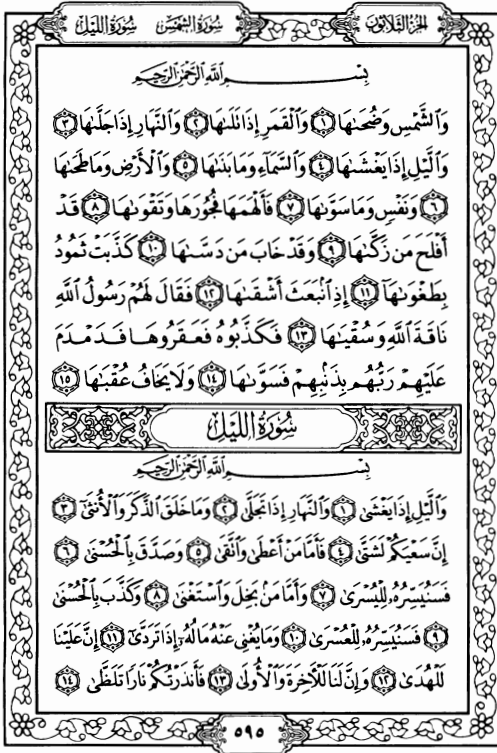 الجزء الثلاثون سورة الشمس سورة الليل
بسم الله الرحمن الرحيم
وَالشَّمْسِ وَضُحَىٰهَا ١ وَالْقَمَرِ إِذَا تَلَىٰهَا ٢ وَالنَّهَارِ إِذَا جَلَّىٰهَا ٣
وَالَّيْلِ إِذَا يَغْشَىٰهَا ٤ وَالسَّمَآءِ وَمَا بَنَىٰهَا ٥ وَالْأَرْضِ وَمَا طَحَىٰهَا
٦ وَنَفْسٍ وَمَا سَوَّىٰهَا ٧ فَأَلْهَمَهَا فُجُورَهَا وَتَقْوَىٰهَا ٨ قَدْ
أَفْلَحَ مَن زَكَّىٰهَا ٩ وَقَدْ خَابَ مَن دَسَّىٰهَا ١٠ كَذَّبَتْ ثَمُودُ
بِطَغْوَىٰهَآ ١١ إِذِ انۢبَعَثَ أَشْقَىٰهَا ١٢ فَقَالَ لَهُمْ رَسُولُ اللَّهِ
نَاقَةَ اللَّهِ وَسُقْيَٰهَا ١٣ فَكَذَّبُوهُ فَعَقَرُوهَا فَدَمْدَمَ
عَلَيْهِمْ رَبُّهُم بِذَنۢبِهِمْ فَسَوَّىٰهَا ١٤ وَلَا يَخَافُ عُقْبَٰهَا ١٥
سُورَةُ اللَّيْلِ
بسم الله الرحمن الرحيم
وَالَّيْلِ إِذَا يَغْشَىٰ ١ وَالنَّهَارِ إِذَا تَجَلَّىٰ ٢ وَمَا خَلَقَ الذَّكَرَ وَالْأُنثَىٰٓ ٣
إِنَّ سَعْيَكُمْ لَشَتَّىٰ ٤ فَأَمَّا مَنْ أَعْطَىٰ وَاتَّقَىٰ ٥ وَصَدَّقَ بِالْحُسْنَىٰ ٦
فَسَنُيَسِّرُهُۥ لِلْيُسْرَىٰ ٧ وَأَمَّا مَنۢ بَخِلَ وَاسْتَغْنَىٰ ٨ وَكَذَّبَ بِالْحُسْنَىٰ
٩ فَسَنُيَسِّرُهُۥ لِلْعُسْرَىٰ ١٠ وَمَا يُغْنِي عَنْهُ مَالُهُۥٓ إِذَا تَرَدَّىٰٓ ١١ إِنَّ عَلَيْنَا
لَلْهُدَىٰ ١٢ وَإِنَّ لَنَا لَلْءَاخِرَةَ وَالْأُولَىٰ ١٣ فَأَنذَرْتُكُمْ نَارًا تَلَظَّىٰ ١٤
٥٩٥